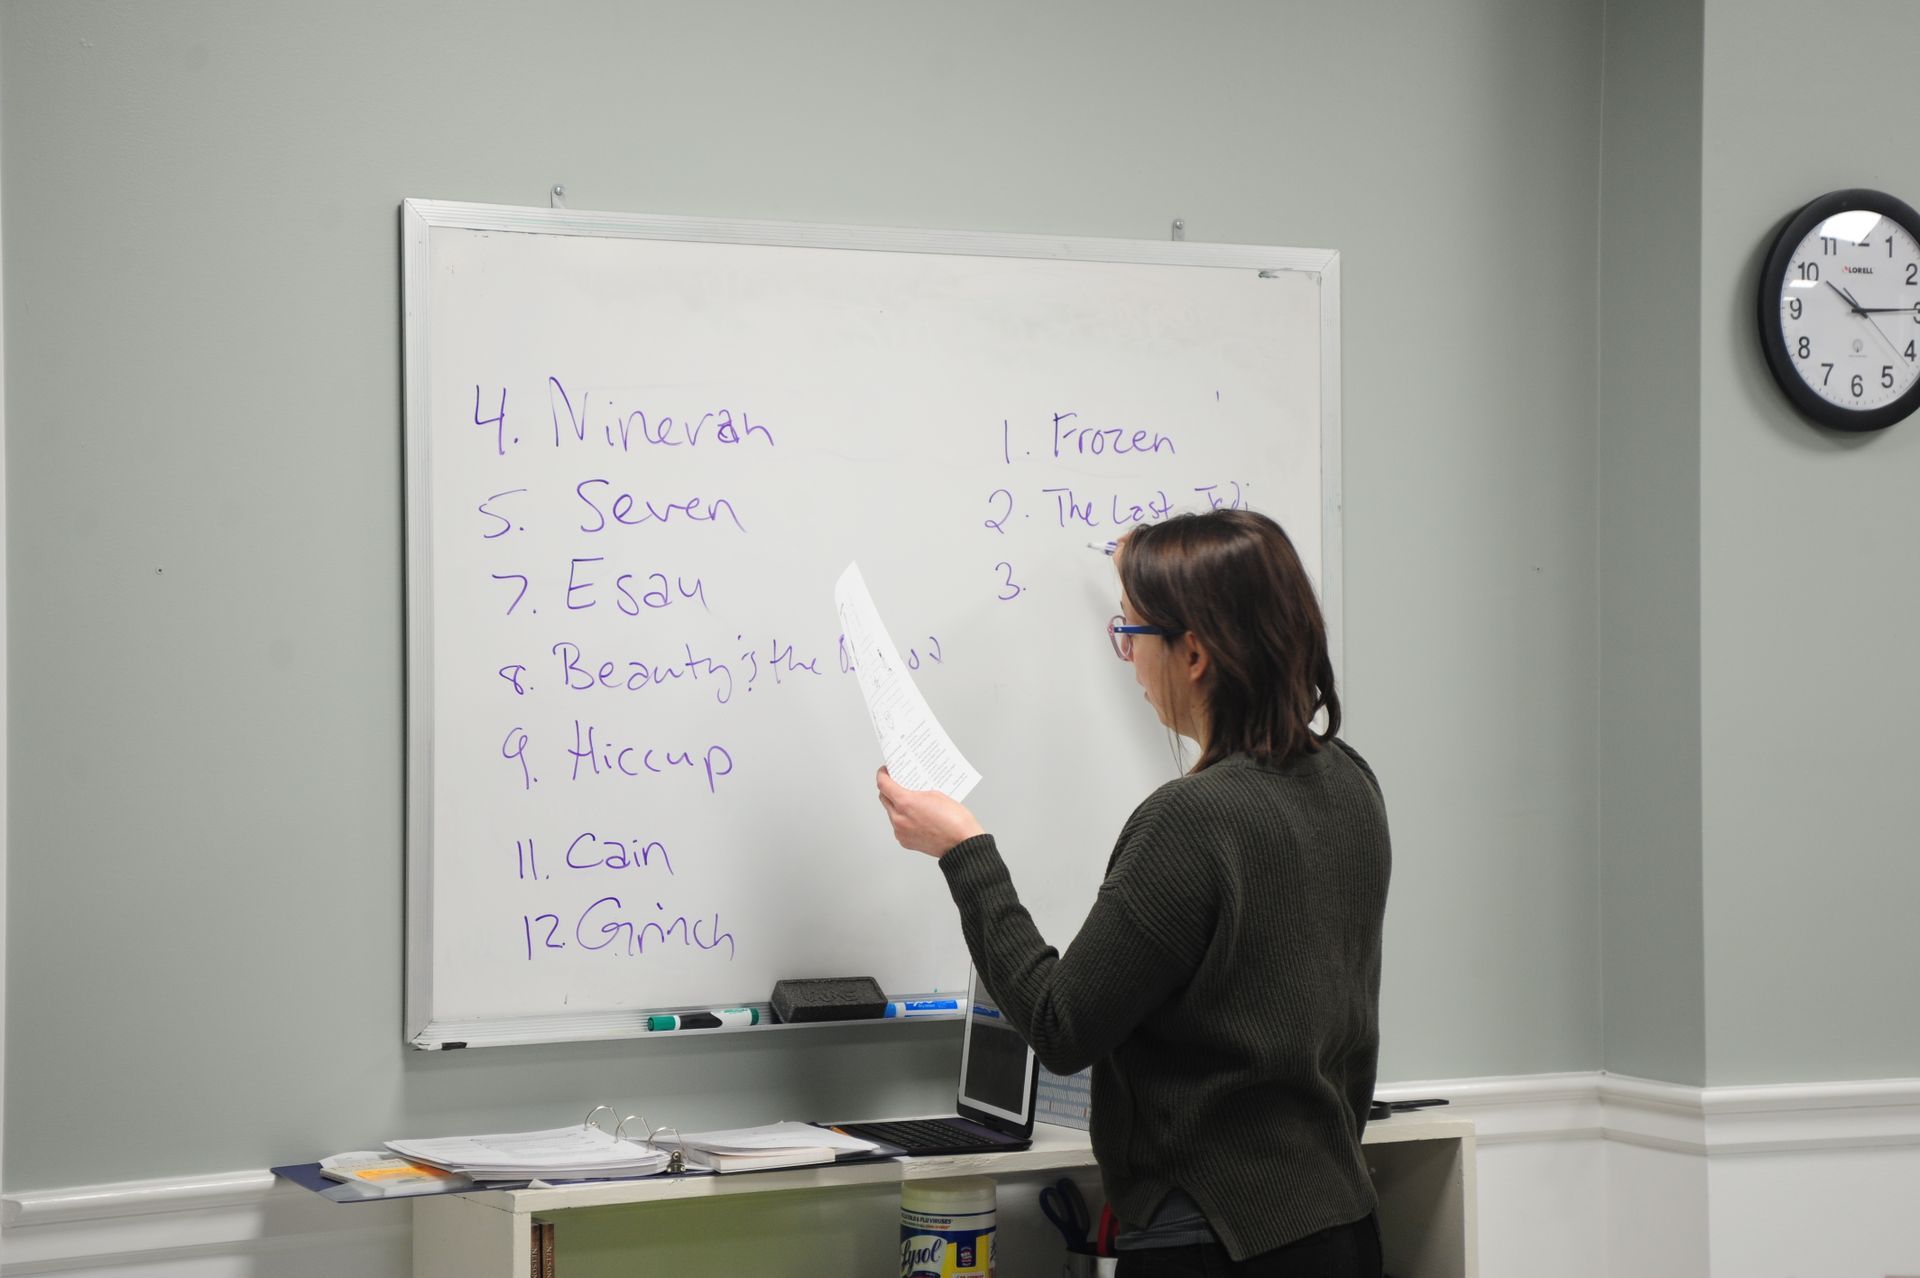 4. Ninevah
5. Seven
7. Esau
8. Beauty & the
9. Hiccup
11. Cain
12. Grinch
1. Frozen
2. The Last Jedi
3.
11 12 1
10 2
9 3
8 4
7 6 5
LORELL
COLD & FLU VIRUSES
Lysol
EXPO
NELSON
NELSON